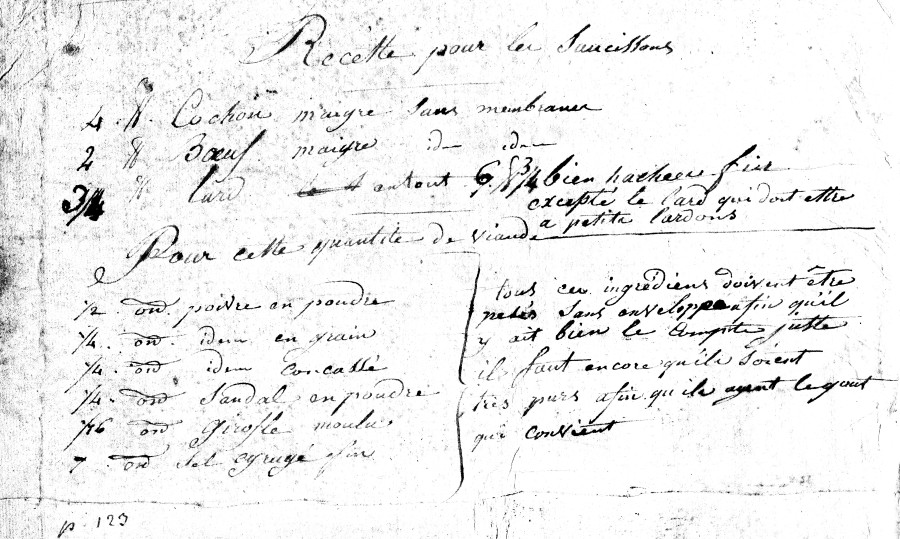 Recette pour les Saucissons
4 ℔. Cochon maigre sans membranes
2 ℔ Bœuf maigre idm idm
3/4 ℔ lard en tout 6 ℔ 3/4 bien hachees fin
excepté le lard qui doit ettre
a petits lardons
Pour cette quantité de viande
1/2 . ond. poivre en poudre
1/4 . ond. idem en grain
1/4 . ond idem concassé
1/4 . ond Sandal en poudre
1/16 ond Girofle moulu
7 . ond Sel egrugé fin
tous ces ingrédiens doivent être
pesés sans enveloppe afin qu'il
y ait bien le Compte juste
il faut encore qu'ils soient
très purs afin qu'ils ayent le gout
qui convient
p. 123